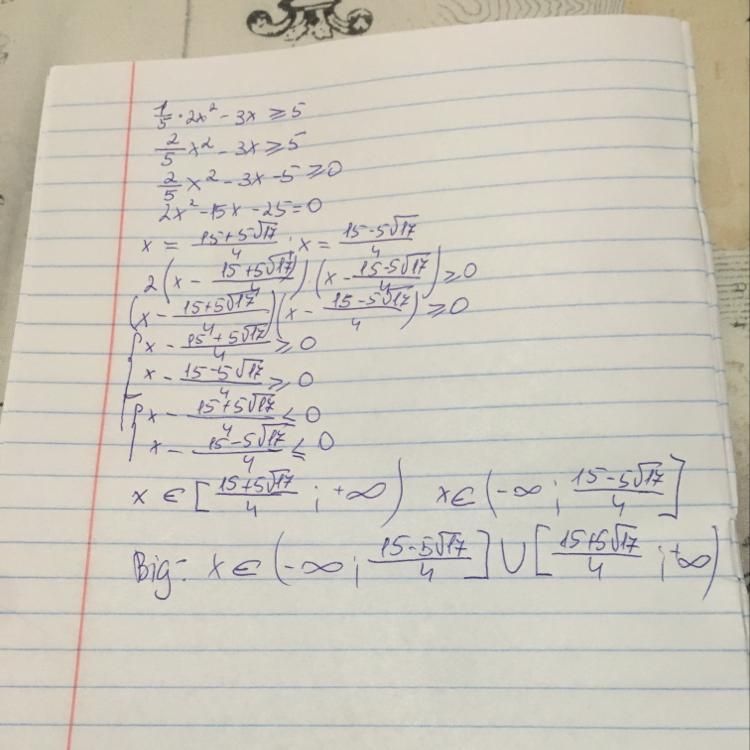 1/5 · 2x² - 3x ≥ 5
2/5 x² - 3x ≥ 5
2/5 x² - 3x - 5 ≥ 0
2x² - 15x - 25 = 0
x = (15+5√17)/4 ; x = (15-5√17)/4
2(x - (15+5√17)/4) · (x - (15-5√17)/4) ≥ 0
(x - (15+5√17)/4)(x - (15-5√17)/4) ≥ 0
{x - (15+5√17)/4 ≥ 0
x - (15-5√17)/4 ≥ 0
[{x - (15+5√17)/4 ≤ 0
x - (15-5√17)/4 ≤ 0
x ∈ [(15+5√17)/4 ; +∞) x ∈ (-∞ ; (15-5√17)/4]
Big: x ∈ (-∞ ; (15-5√17)/4] ∪ [(15+5√17)/4 ; +∞)